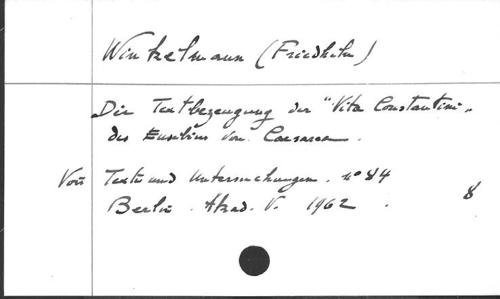 Winkelmann (Friedhelm)
Die Textbezeugung der "Vita Constantini"
des Eusebius von Caesarea.
Voir Texte und Untersuchungen. nº 84
Berlin. Akad. V. 1962.
8